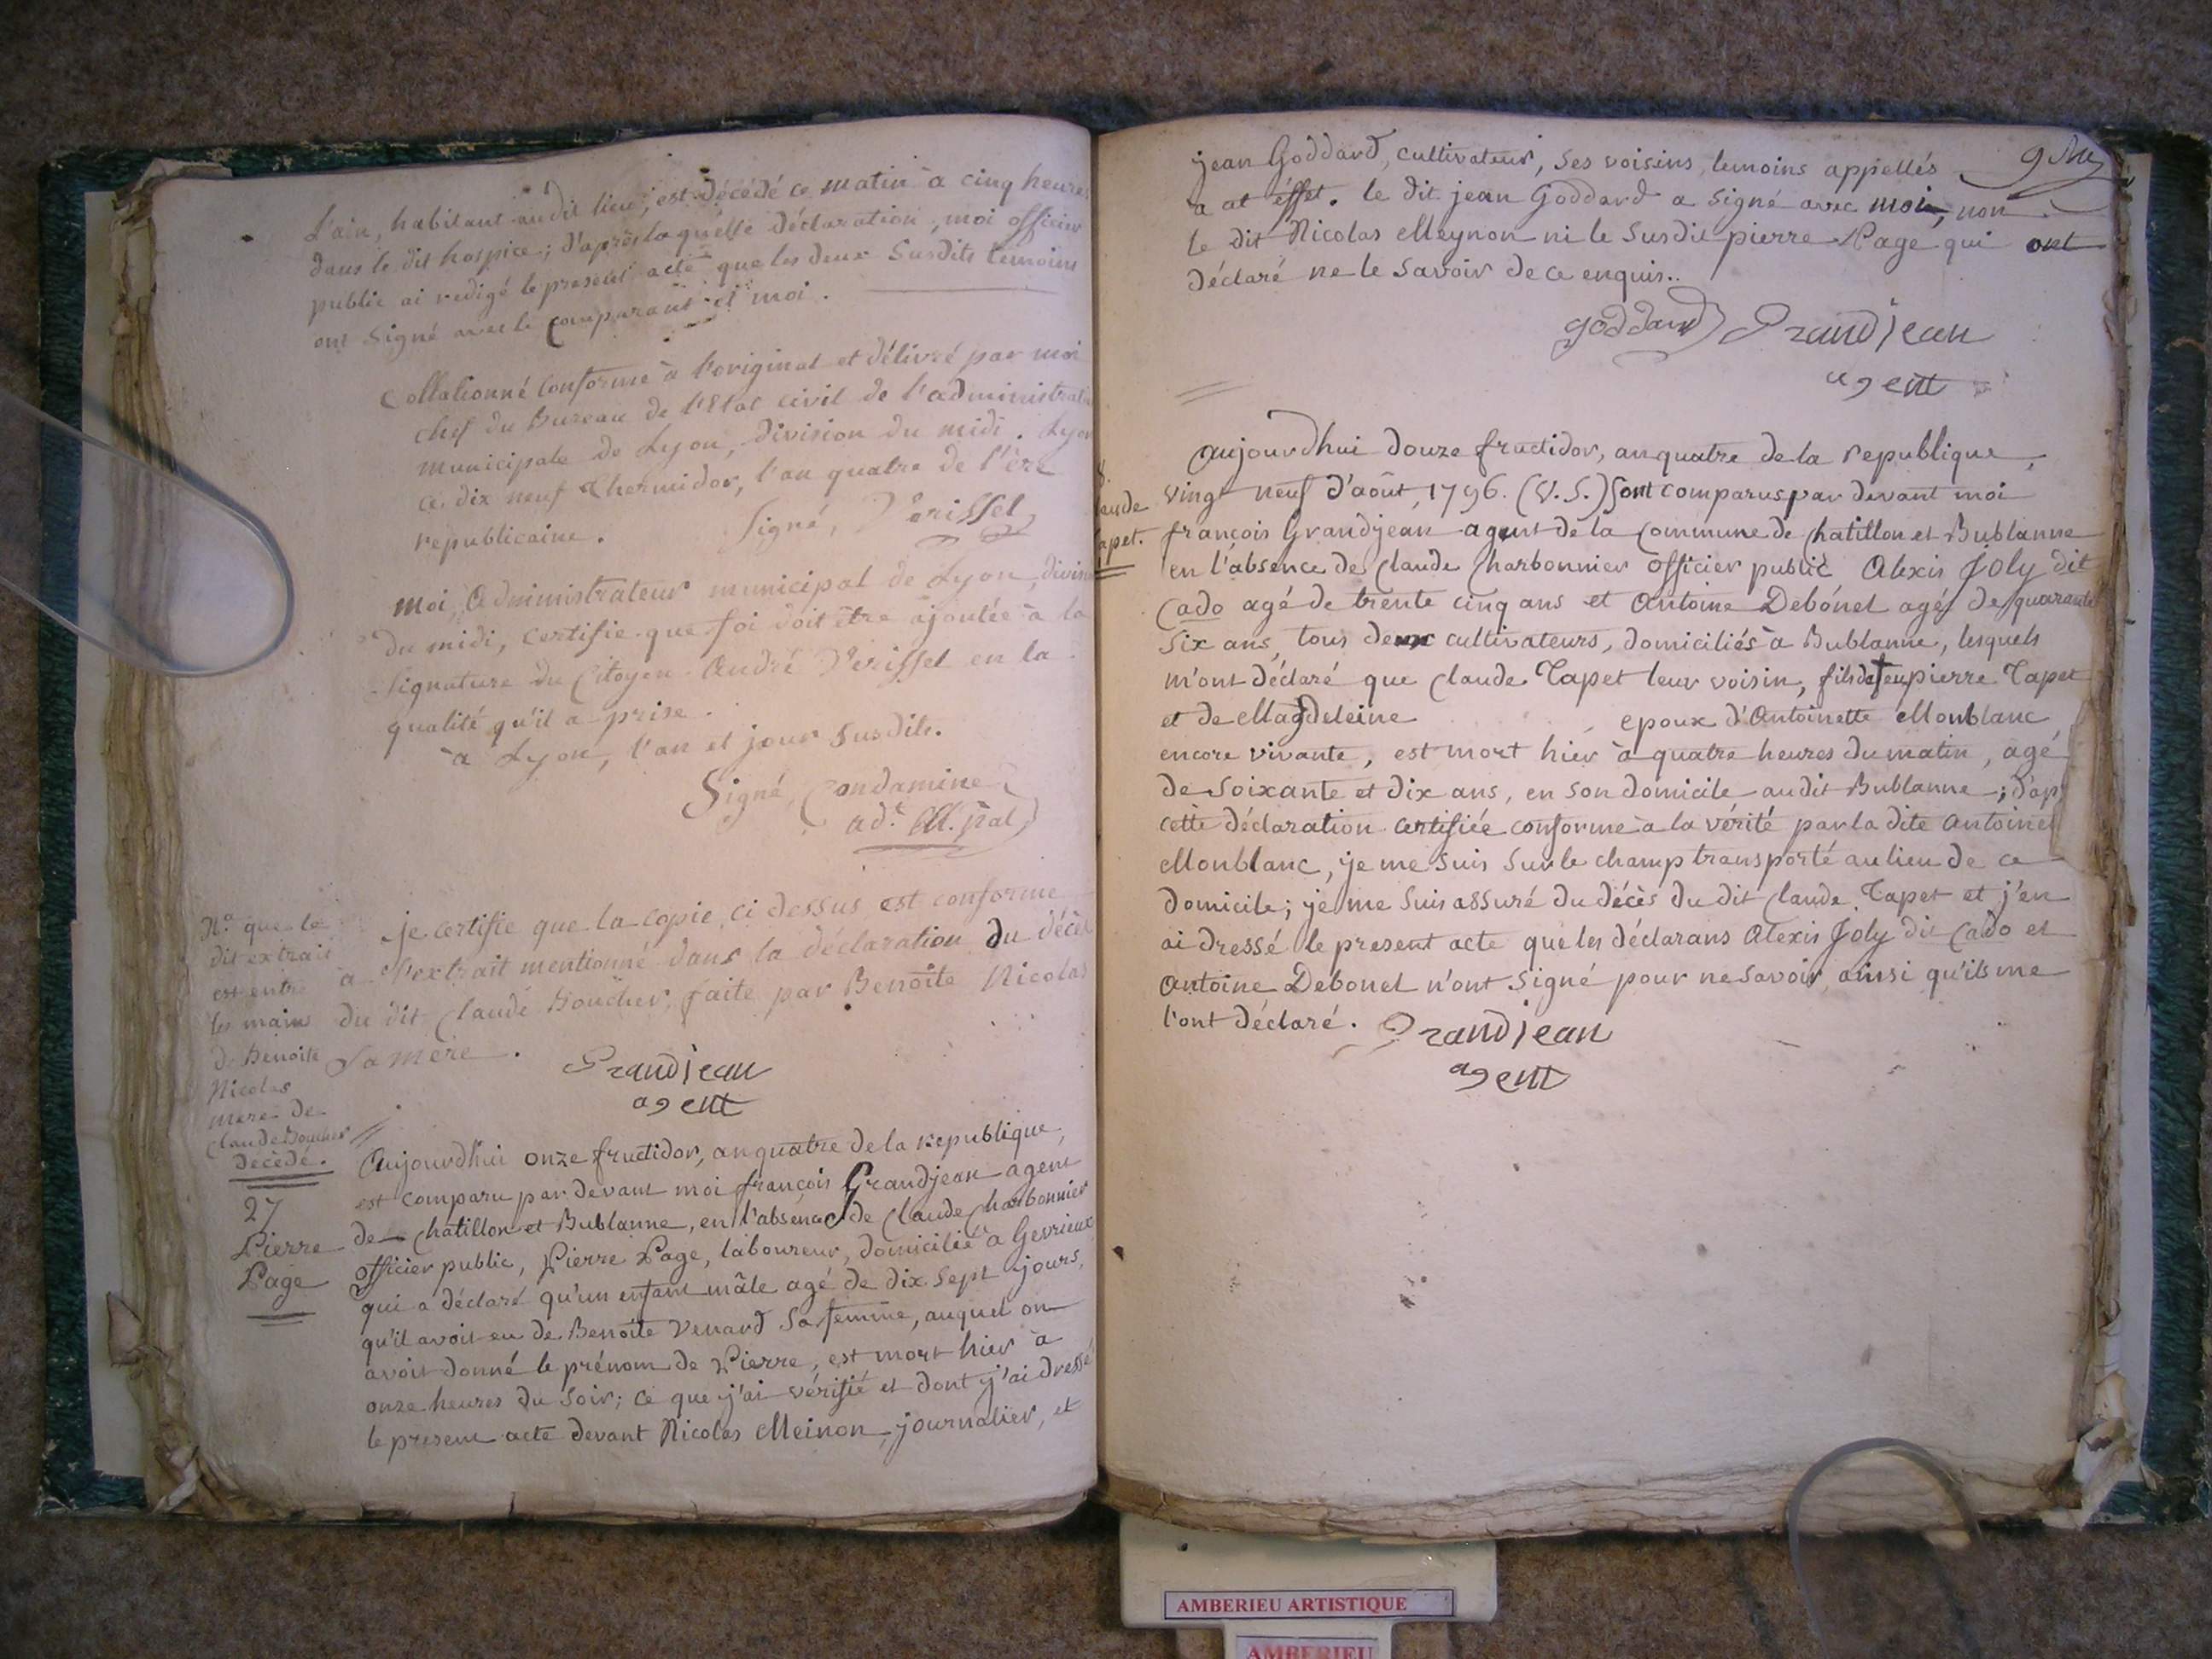 L'ain, habitant audit lieu, est décédé ce matin à cinq heures
dans le dit hospice; d'après laquelle déclaration, moi officier
public ai redigé le present acte que les deux susdits temoins
ont signé avec le comparant et moi.
Collationné conforme à l'original et délivré par moi
chef du Bureau de l'Etat civil de l'administrati
municipale de Lyon, division du midi. Lyon
ce dix neuf thermidor, l'an quatre de l'ère
republicaine. Signé, Verissel
moi, administrateur municipal de Lyon, divisi
du midi, certifie que foi doit être ajoutée à la
signature du Citoyen André Verissel en la
qualité qu'il a prise.
à Lyon, l'an et jour susdits.
Signé, Condamine
ad.r M.pal
Na que le
dit extrait
est entre
les mains
de Benoite
Nicolas
mere de
Claude Boucher
décédé.
je certifie que la copie, ci dessus est conforme
à l'extrait mentionné dans la déclaration du décès
du dit Claude Boucher, faite par Benoite Nicolas
sa mère.
Grandjean
agent
27
Pierre
Page
Aujourdhui onze fructidor, an quatre de la republique,
est comparu par devant moi françois Grandjean agent
de Chatillon et Bublanne, en l'absence de Claude Charbonnier
officier public, Pierre Page, laboureur, domicilié à Gevrieux
qui a déclaré qu'un enfant mâle agé de dix sept jours,
qu'il avoit eu de Benoite Venard sa femme, auquel on
avoit donné le prénom de Pierre, est mort hier à
onze heures du soir; ce que j'ai vérifié et dont j'ai dressé
le present acte devant Nicolas Meinon, journalier, et
jean Goddard, cultivateur, ses voisins, temoins appellés
a cet éffet. le dit jean Goddard a signé avec moi, non
le dit Nicolas Meynon ni le susdit pierre Page qui ont
déclaré ne le savoir de ce enquis..
goddard Grandjean
agent
8.
aude
apet.
aujourdhui douze fructidor, an quatre de la republique,
vingt neuf d'août, 1796. (V.S.) sont comparus par devant moi
françois Grandjean agent de la Commune de Chatillon et Bublanne
en l'absence de Claude Charbonnier officier public Alexis Joly dit
Cado agé de trente cinq ans et Antoine Debónet agé de quarante
six ans, tous deux cultivateurs, domiciliés à Bublanne, lesquels
m'ont déclaré que Claude Tapet leur voisin, fils de feu pierre Tapet
et de Magdeleine epoux d'Antoinette Monblanc
encore vivante, est mort hier à quatre heures du matin, agé
de soixante et dix ans, en son domicile audit Bublanne; d'ap
cette déclaration certifiée conforme à la vérité par la dite Antoinet
Monblanc, je me suis sur le champ transporté au lieu de ce
domicile; je me suis assuré du décès du dit Claude Tapet et j'en
ai dressé le present acte que les déclarans Alexis Joly dit Cado et
Antoine Debonet n'ont signé pour ne savoir, ainsi qu'ils me
l'ont déclaré. Grandjean
agent
AMBERIEU ARTISTIQUE
AMBERIEU